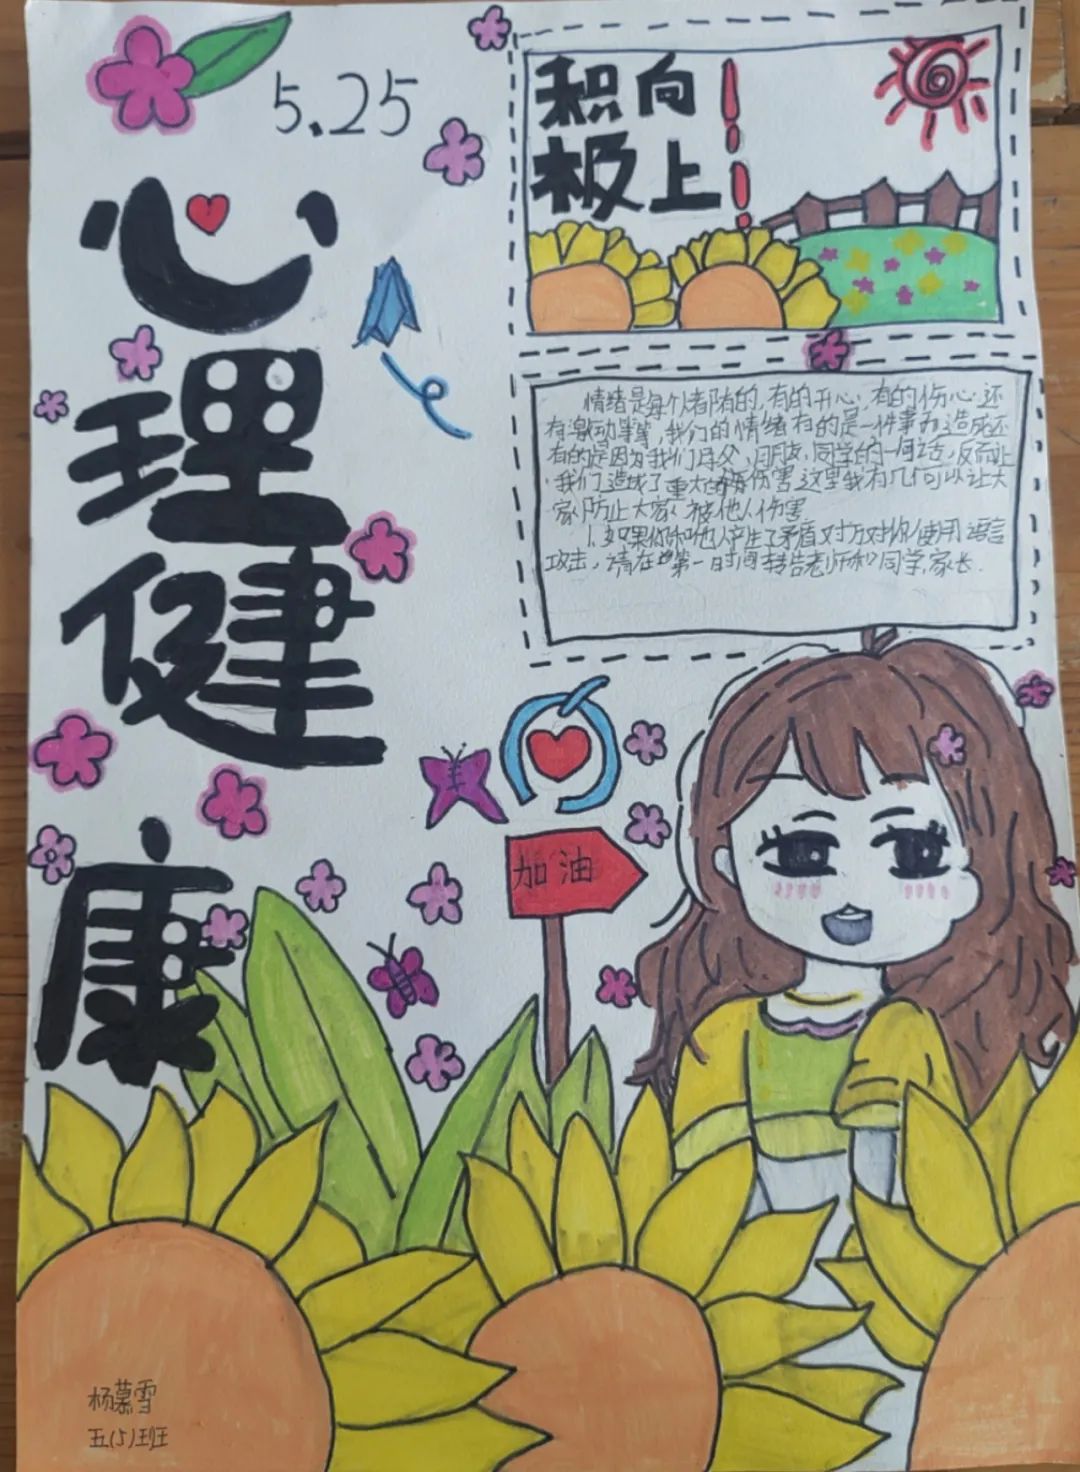 5.25
心
理
健
康
积向
极上!!
情绪是每个人都有的,有的开心,有的伤心还
有激动等等,我们的情绪有的是一件事而造成还
有的是因为我们母父、朋友、同学的一句话,反而让
我们造成了重大的伤害这里我有几个可以让大
家防止大家被他人伤害
1.如果你和他人产生了矛盾对方对你使用语言
攻击,请在第一时间转告老师和同学,家长.
加油
杨慕雪
五(5)班